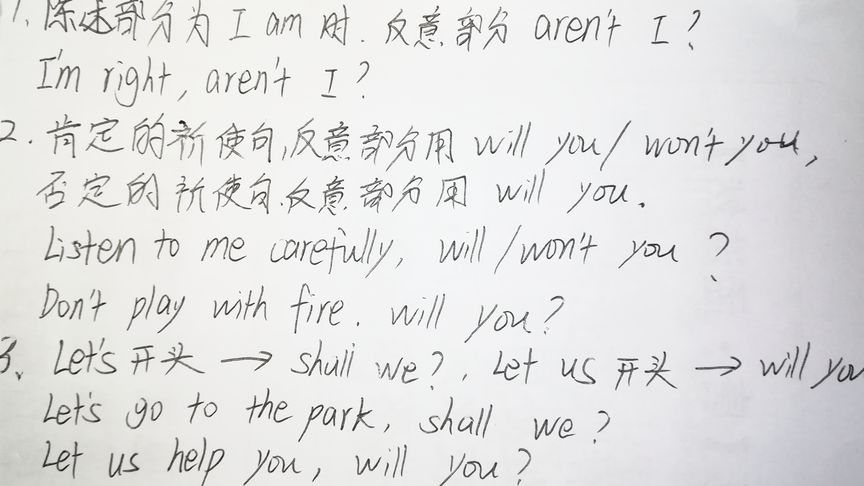 1. 陈述部分为 I am 时. 反意部分 aren't I?
I'm right, aren't I?
2. 肯定的祈使句,反意部分用 will you/ won't you,
否定的祈使句.反意部分用 will you.
Listen to me carefully, will /won't you ?
Don't play with fire. will you?
3、Let's 开头 → shall we?, Let us 开头 → will you
Let's go to the park, shall we?
Let us help you, will you?